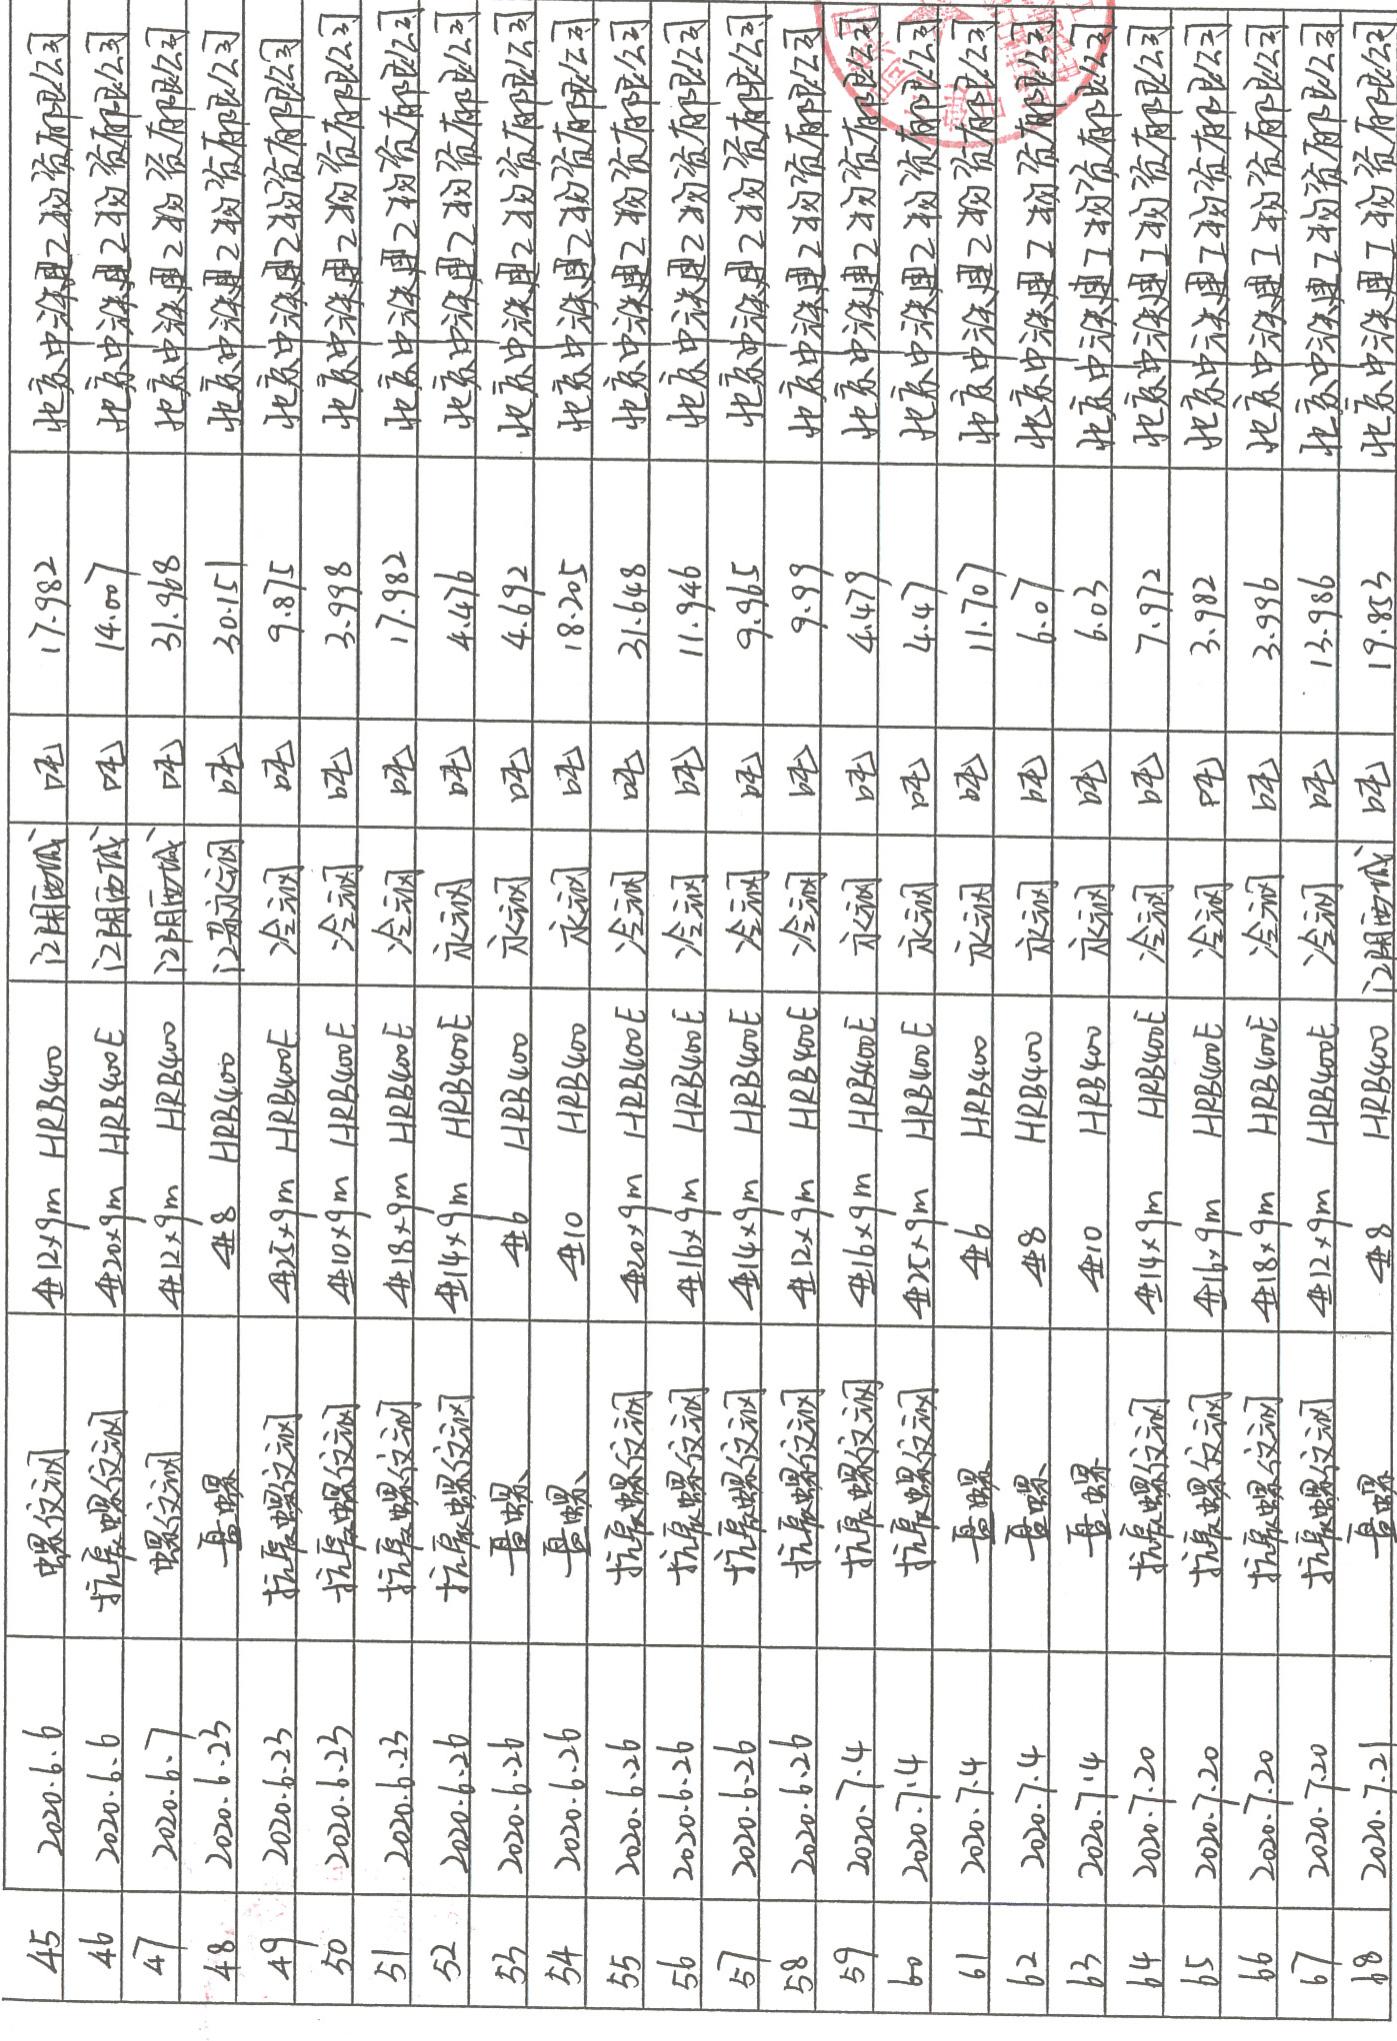 45 2020.6.6 螺纹钢 Φ12×9m HRB400 江阴西城 吨 17.982 北京中铁建工物资有限公司
46 2020.6.6 抗震螺纹钢 Φ20×9m HRB400E 江阴西城 吨 14.007 北京中铁建工物资有限公司
47 2020.6.7 螺纹钢 Φ12×9m HRB400 江阴西城 吨 31.968 北京中铁建工物资有限公司
48 2020.6.23 盘螺 Φ8 HRB400 江苏永钢 吨 30.151 北京中铁建工物资有限公司
49 2020.6.23 抗震螺纹钢 Φ25×9m HRB400E 冷钢 吨 9.875 北京中铁建工物资有限公司
50 2020.6.23 抗震螺纹钢 Φ10×9m HRB400E 冷钢 吨 3.998 北京中铁建工物资有限公司
51 2020.6.23 抗震螺纹钢 Φ18×9m HRB400E 冷钢 吨 17.982 北京中铁建工物资有限公司
52 2020.6.26 抗震螺纹钢 Φ14×9m HRB400E 永钢 吨 4.476 北京中铁建工物资有限公司
53 2020.6.26 盘螺 Φ6 HRB400 永钢 吨 4.692 北京中铁建工物资有限公司
54 2020.6.26 盘螺 Φ10 HRB400 永钢 吨 18.205 北京中铁建工物资有限公司
55 2020.6.26 抗震螺纹钢 Φ20×9m HRB400E 冷钢 吨 31.648 北京中铁建工物资有限公司
56 2020.6.26 抗震螺纹钢 Φ16×9m HRB400E 冷钢 吨 11.946 北京中铁建工物资有限公司
57 2020.6.26 抗震螺纹钢 Φ14×9m HRB400E 冷钢 吨 9.965 北京中铁建工物资有限公司
58 2020.6.26 抗震螺纹钢 Φ12×9m HRB400E 冷钢 吨 9.99 北京中铁建工物资有限公司
59 2020.7.4 抗震螺纹钢 Φ16×9m HRB400E 永钢 吨 4.479 北京中铁建工物资有限公司
60 2020.7.4 抗震螺纹钢 Φ25×9m HRB400E 永钢 吨 4.47 北京中铁建工物资有限公司
61 2020.7.4 盘螺 Φ6 HRB400 永钢 吨 11.707 北京中铁建工物资有限公司
62 2020.7.4 盘螺 Φ8 HRB400 永钢 吨 6.07 北京中铁建工物资有限公司
63 2020.7.4 盘螺 Φ10 HRB400 永钢 吨 6.03 北京中铁建工物资有限公司
64 2020.7.20 抗震螺纹钢 Φ14×9m HRB400E 冷钢 吨 7.972 北京中铁建工物资有限公司
65 2020.7.20 抗震螺纹钢 Φ16×9m HRB400E 冷钢 吨 3.982 北京中铁建工物资有限公司
66 2020.7.20 抗震螺纹钢 Φ18×9m HRB400E 冷钢 吨 3.996 北京中铁建工物资有限公司
67 2020.7.20 抗震螺纹钢 Φ12×9m HRB400E 冷钢 吨 13.986 北京中铁建工物资有限公司
68 2020.7.21 盘螺 Φ8 HRB400 江阴西城 吨 19.853 北京中铁建工物资有限公司